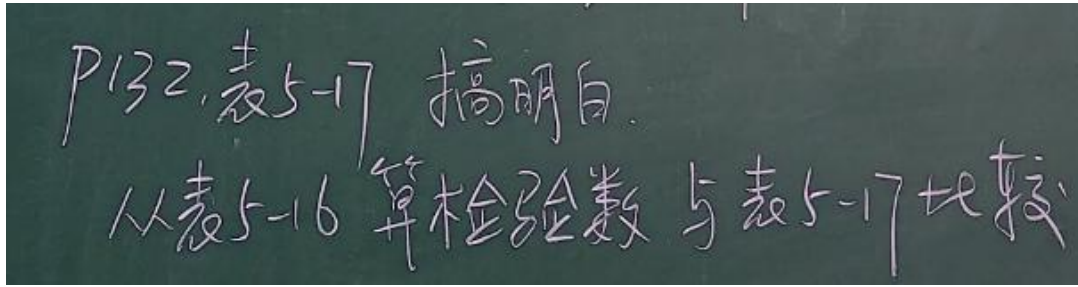 P132,表5-17 搞明白.
从表5-16 算检验数 与表5-17比较